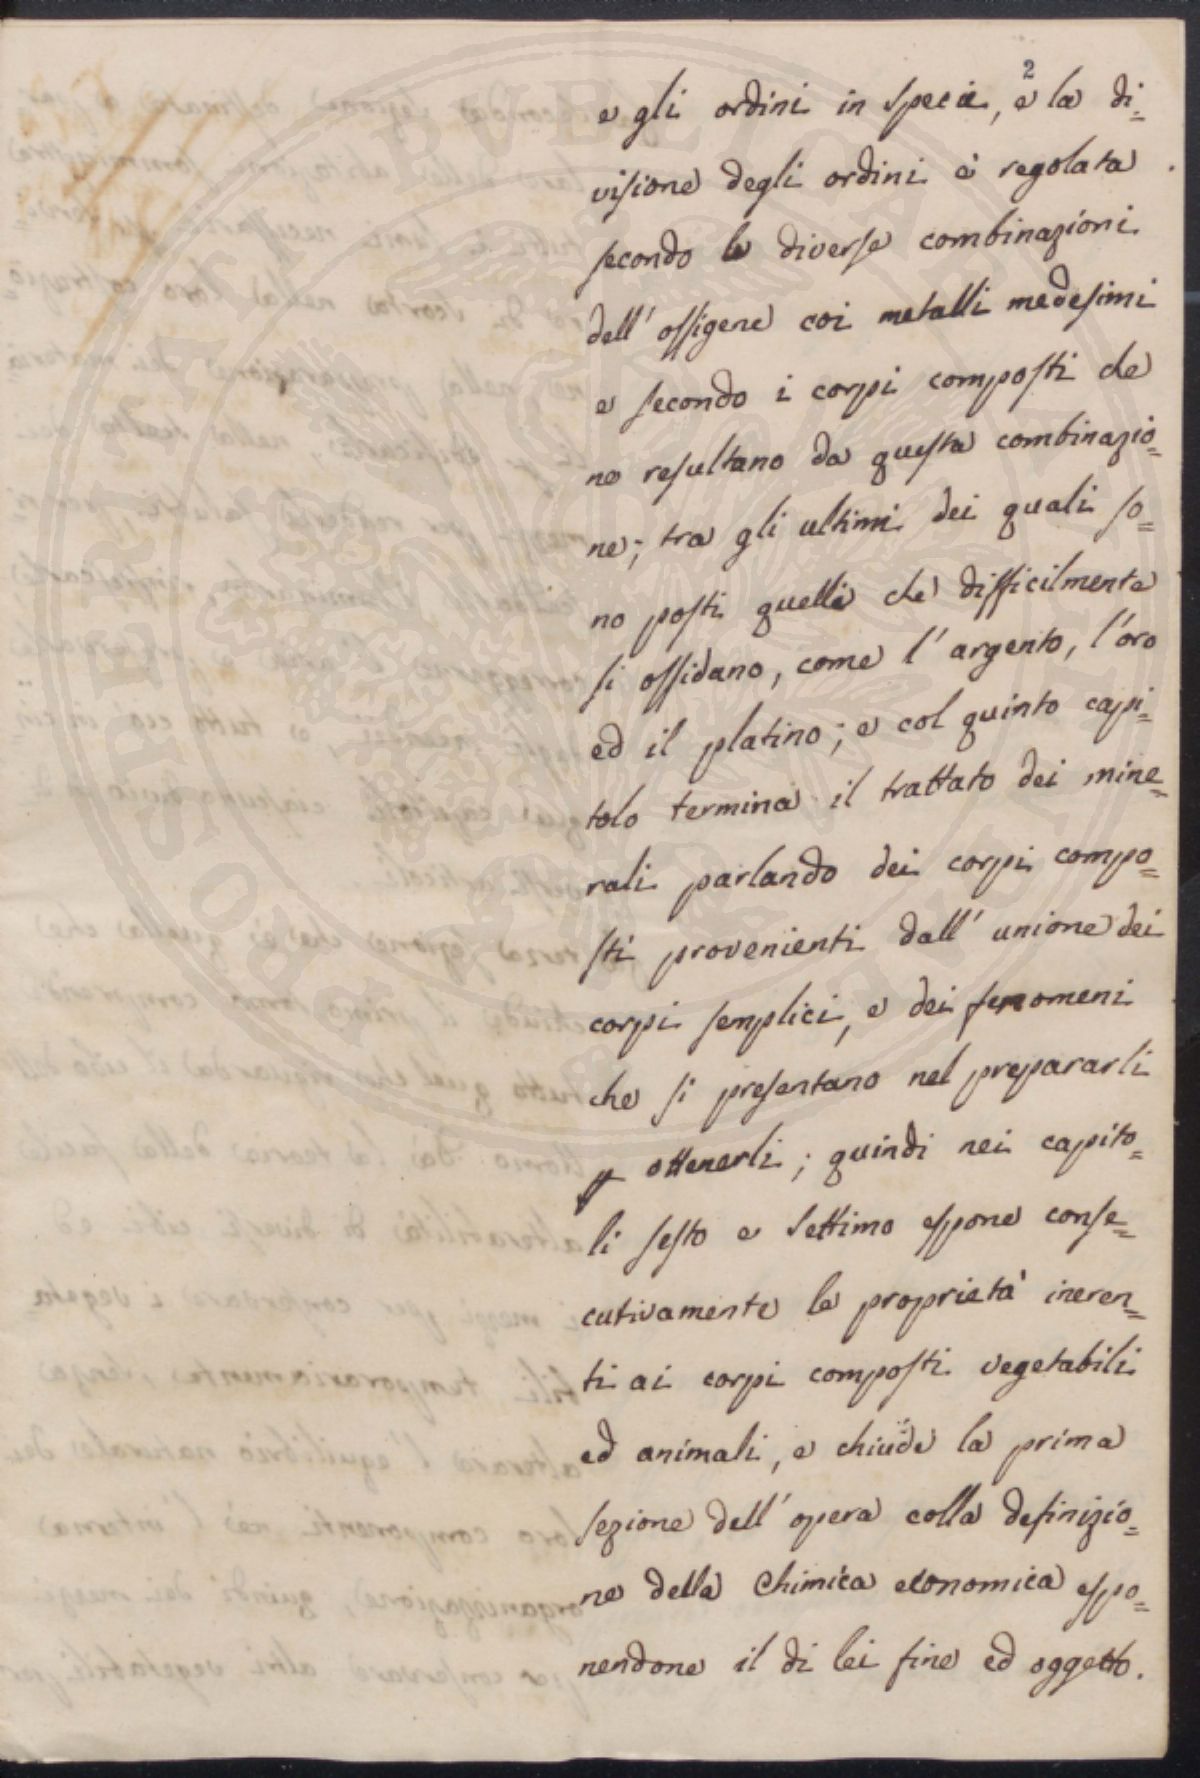 2
e gli ordini in specie, e la di=
visione degli ordini è regolata
secondo le diverse combinazioni
dell' ossigene coi metalli medesimi
e secondo i corpi composti che
ne resultano da questa combinazio=
ne; tra gli ultimi dei quali so=
no posti quelli che difficilmente
si ossidano, come l' argento, l'oro
ed il platino; e col quinto capi=
tolo termina il trattato dei mine=
rali parlando dei corpi compo=
sti provenienti dall' unione dei
corpi semplici, e dei fenomeni
che si presentano nel prepararli
ottenerli; quindi nei capito=
li sesto e settimo espone conse=
cutivamente le proprietà ineren=
ti ai corpi composti vegetabili
ed animali, e chiude la prima
sezione dell' opera colla definizio=
ne della Chimica economica espo=
nendone il di lei fine ed oggetto.
PUBLICAE
PROSPERITATI